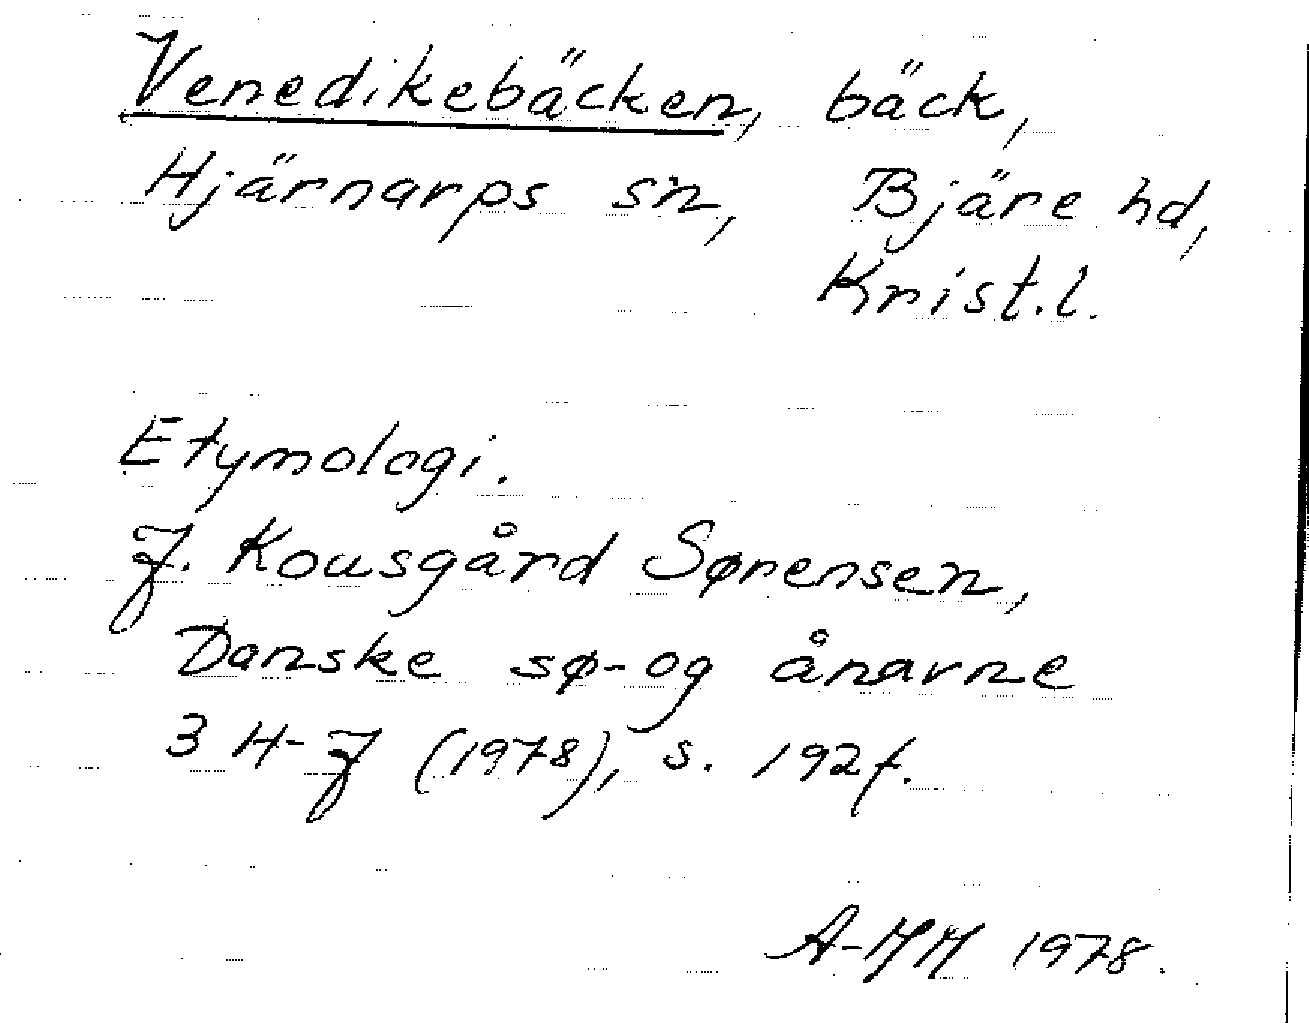 Venedikebäcken, bäck,
Hjärnarps sn, Bjäre hd,
Krist.l.
Etymologi.
J. Kousgård Sørensen,
Danske sø- og ånavne
3 H-J (1978), s. 192f.
A-MM 1978.